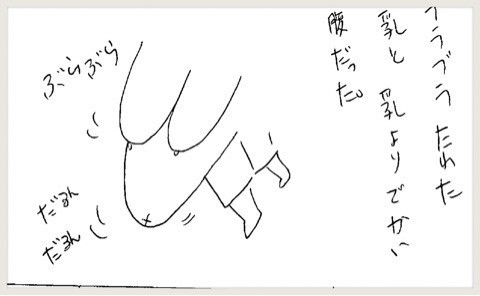 ブラブラ たれた
乳と 乳よりでかい
腹だった。
ぶらぶら
だるん
だるん